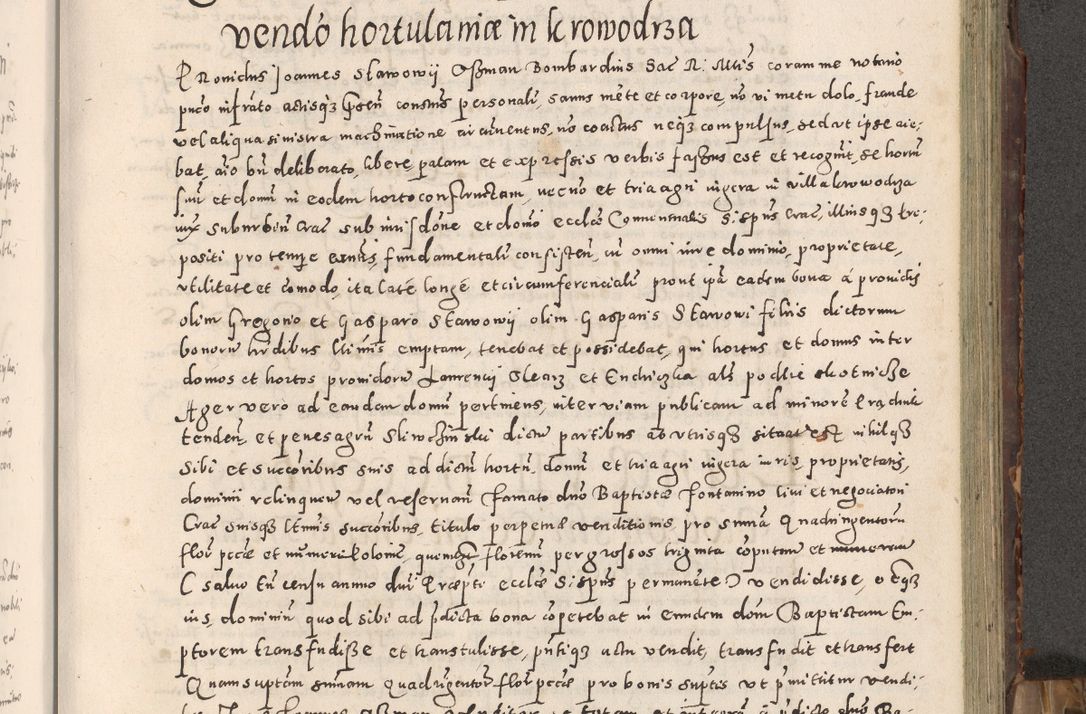 vendo hortulaniæ in krowodrza
Pronidus Joannes Sławowij Ossman Bombardius Sac R: Mtis coram me notario
puco infrato actisqz psen constus personalr, sanus mēte et corpore, nō vi metu dolo, fraude
vel aliqua sinistra machinatione circuuentus, nō coactus neqz compulsus, sed vt ipse aie:
bat, aīo bn deliberato, libere, palam et expressis verbis fassus est et recognit, se hortū
suū et domū in eodem horto constructam, necnō et tria agri iugera in villa krowodrza
iux suburbiū Crac sub iurisdōne et domō ecclæ Conuentualis S: Spūs Crac, illiusqz Præ:
positi pro tempe exntis, fundamentalr consisten, cū omni iure dominio, proprietate,
vtilitate et cōmodo, ita late longe et circumferencialr prout ipā eadem bona a prouidis
olim Gregorio et Gasparo Sławowij olim Gasparis Sławowi filiis dictorum
bonorū hrdibus ltimis emptam, tenebat et possidebat, qui hortus et domus inter
domos et hortos prouidorū Laurencij Slearz et Endriczka als podlie skotnicze
Ager vero ad eandem domū pertinens, inter viam publicam ad minorē Prądnik
tenden, et penes agrū Sliwchinskii dictū partibus ab vtrisqz sitaat est nihilqz
sibi et succōribus suis ad dictū hortū, domū et tria agri iugera iuris, proprietatis,
dominii relinquen vel reseruan famato dno Baptistæ Fontanino Ciui et negociatori
Crac suisqz ltimis succoribus, titulo perpetuæ venditionis, pro summa Quadringentorū
flor pccæ et numeri Poloniæ, quemlibet florenū per grossos triginta cōputan et numeran
( saluo tn censu annuo dni Præpti ecclæ S: Spūs permanēte ) vendidisse, oēqz
ius, dominiū quod sibi ad pdicta bona cōpetebat in eundem dom Baptistam Em:
ptorem transfudisse et transtulisse, pntiqz actu vendit, transfudit et transfert
Quam suptam summam Quadrigentor flor pccæ pro bonis suptis vt pmittitur vendi: